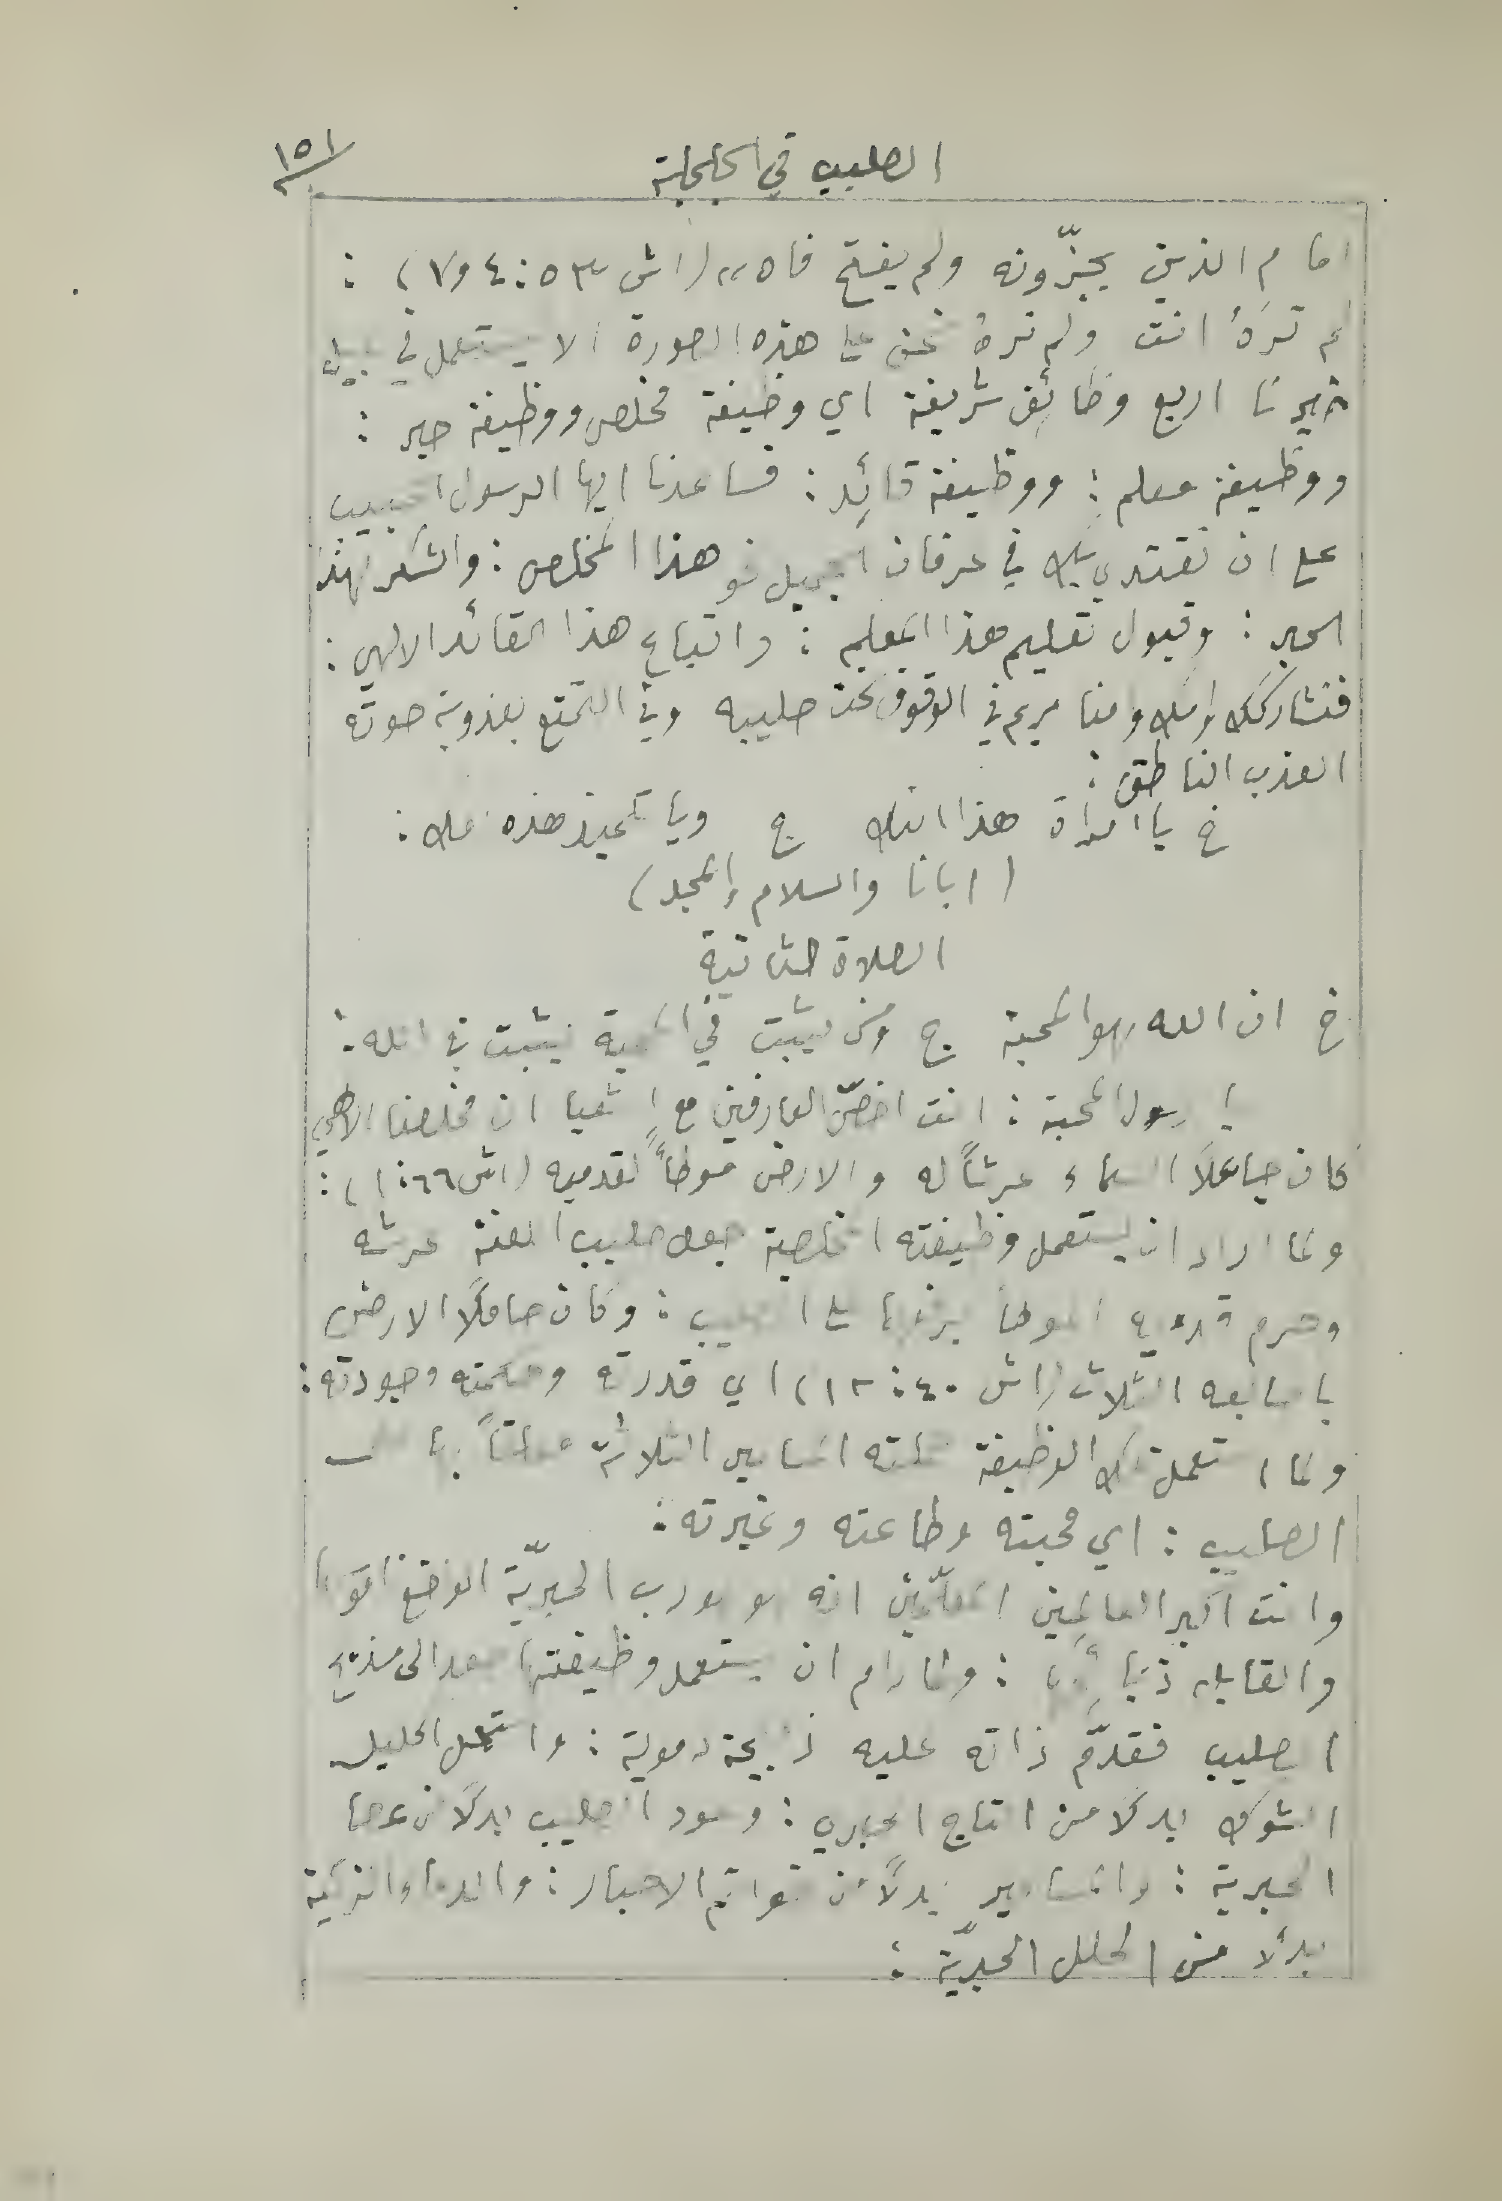 ١٥١
الصليب في الجلجلة
امام الذين يجزّونه ولم يفتح فاه" (اش ٥٣ : ٤ و٧) :
لم ترهُ انت ولم نرهُ نحن على هذه الصورة الا يستعمل في سبيل
خيرنا اربع وظائف شريفة اي وظيفة مخلص ووظيفة حبر :
ووظيفة معلم : ووظيفة قائد : فساعدنا ايها الرسول الحبيب
على ان نقتدي بك في عرفان الجميل نحو هذا المخلص : والشكر لهذا
الحبر : وقبول تعليم هذا المعلم : واتباع هذا القائد الالهي :
فنشاركك وامك وامنا مريم في الوقوف تحت صليبه وفي التمتع بعذوبة صوته
العذب الناطق :
خ يا امرأة هذا ابنك ج ويا تلميذ هذه امك :
(ابانا والسلام والمجد)
الصلاة الثانية
خ ان الله هو المحبة ج ومن يثبت في المحبة يثبت في الله :
يا رسول المحبة : انت اخصّ العارفين مع اشعيا ان مخلصنا الالهي
كان جاعلاً السماء عرشاً له والارض موطأً لقدميه (اش ٦٦ : ١) :
ولما اراد ان يستعمل وظيفته الخلاصية جعل صليب اللعنة عرشه
وحرم قدميه الموطأ برفعها على الصليب : وكان حاملاً الارض
باصابعه الثلاث (اش ٤٠ : ١٢) اي قدرته وحكمته وجودته :
ولما استعمل تلك الوظيفة حملته المسامير الثلاثة
الصليب : اي محبته وطاعته وغيرته :
وانت اكبر العالمين المعلّمين انه هو رب الحبريّة الواضع
والقابل ذبائحها : ولما رام ان يستعمل وظيفتها صعد الى مذبح
الصليب فقدّم ذاته عليه ذبيحة دموية : واستعمل اكليل
الشوك بدلاً من التاج الحبري : وعود الصليب بدلاً من عصا
الحبرية : والمسامير بدلاً من خواتم الاحبار : والدماء الزكية
بدلاً من الحلل الحبريّة :